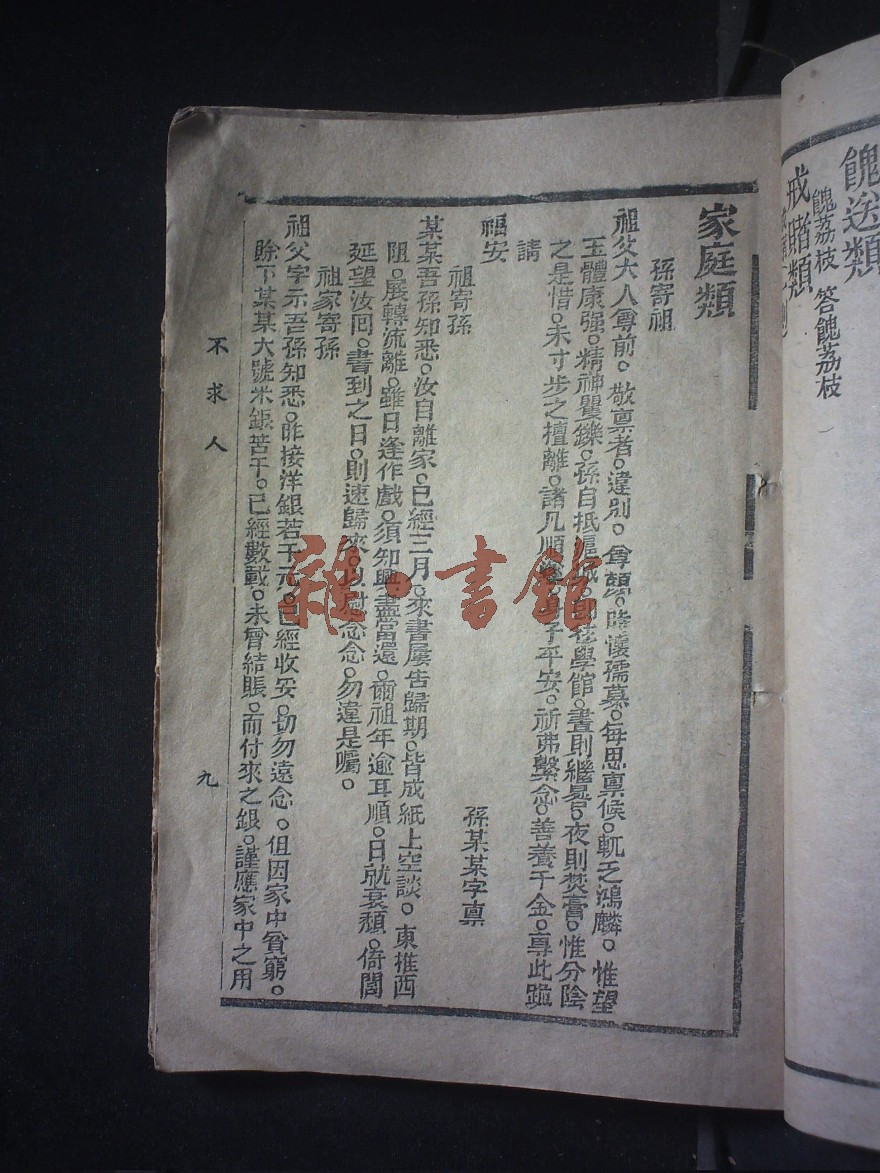 餽送類
餽荔枝 答餽荔枝
戒賭類
家庭類
孫寄祖
祖父大人尊前。敬稟者。違別。尊顏。時懷孺慕。每思稟候。輒乏鴻麟。惟望
玉體康强。精神矍鑠。孫自抵滬城。即往學館。晝則繼晷。夜則焚膏。惟分陰
之是惜。未寸步之擅離。諸凡順遂。身子平安。祈弗繫念。善養千金。專此跪
請
福安
孫某某字稟
祖寄孫
某某吾孫知悉。汝自離家。已經三月。來書屢告歸期。皆成紙上空談。東推西
阻。展轉流離。雖日逢作戲。須知興盡當還。爾祖年逾耳順。日就衰頹。倚閭
延望汝囘。書到之日。則速歸來。以慰念念。勿違是囑。
祖家寄孫
祖父字示吾孫知悉。昨接洋銀若干元。已經收妥。切勿遠念。但因家中貧窮。
賒下某某大號米鋹苦干。已經數載。未曾結賬。而付來之銀。謹應家中之用
不求人
九
雜·書館